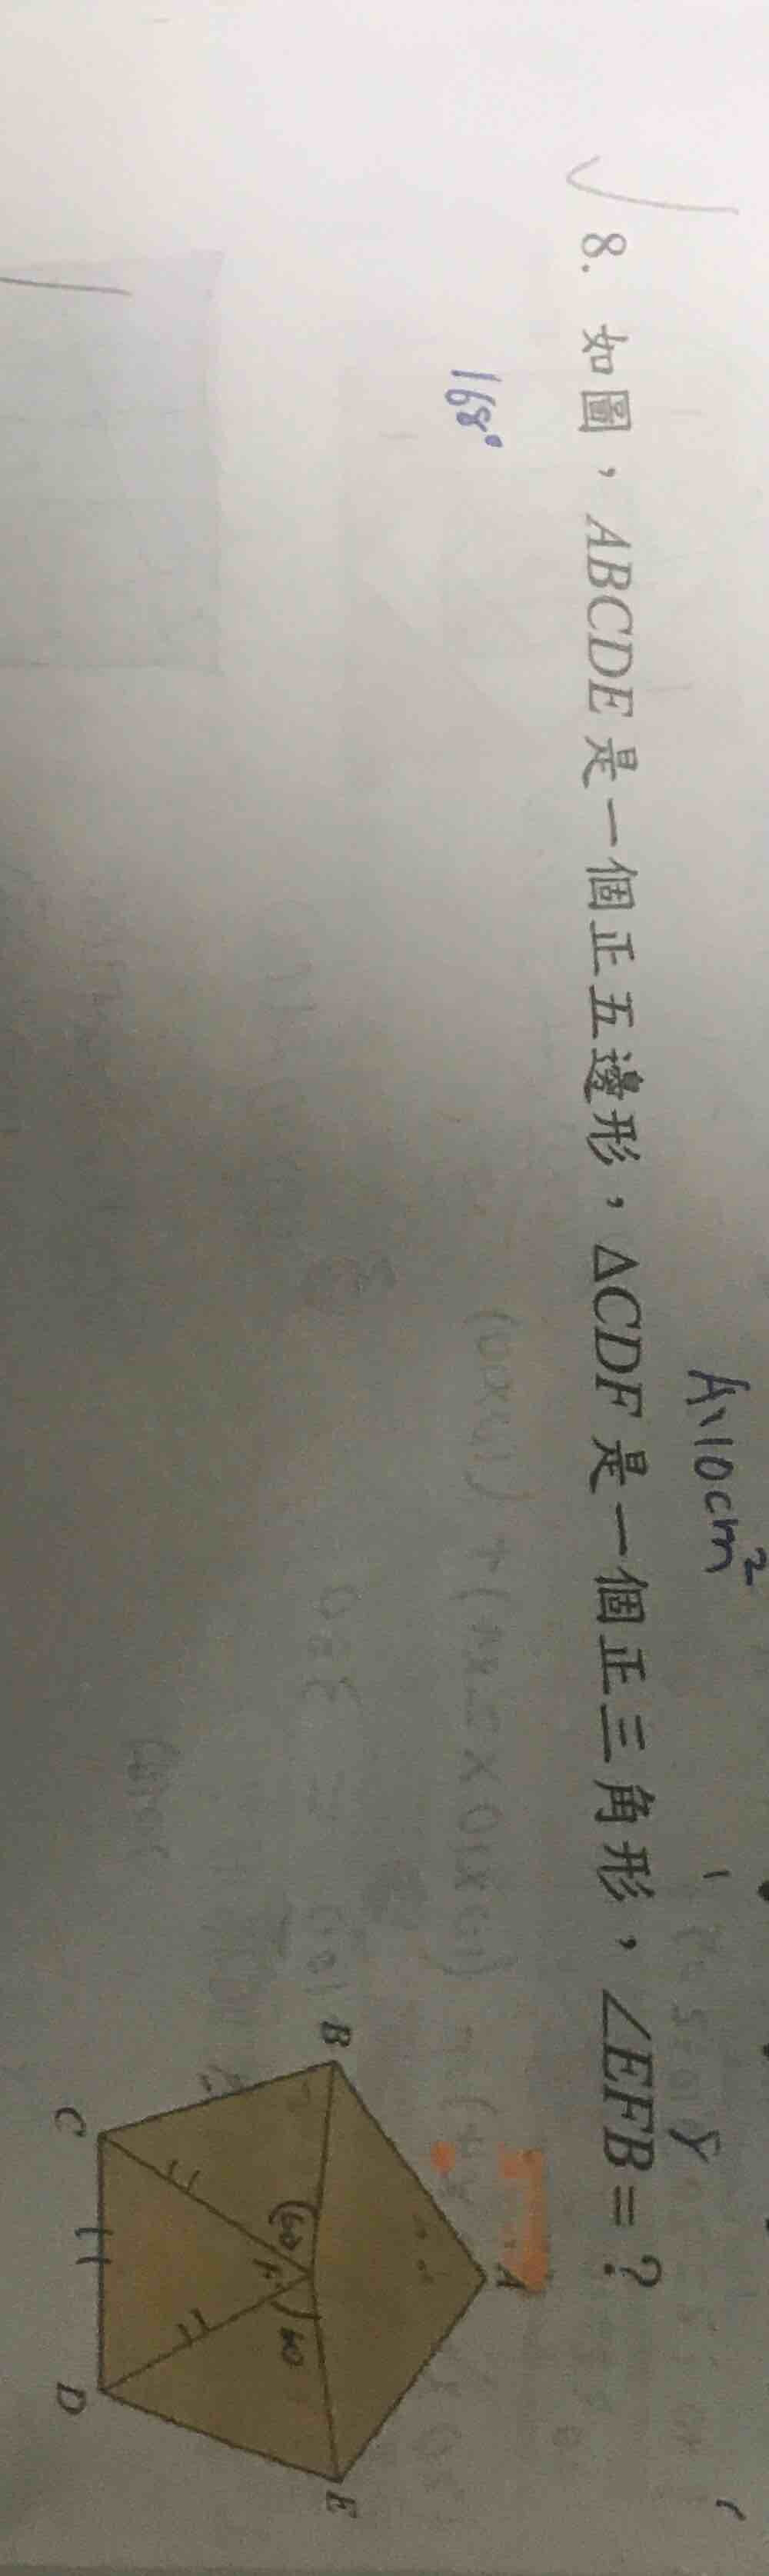 A、10cm²
8. 如圖，ABCDE 是一個正五邊形，△CDF 是一個正三角形，∠EFB = ?
168°
A
B
E
60
60
F
C
D